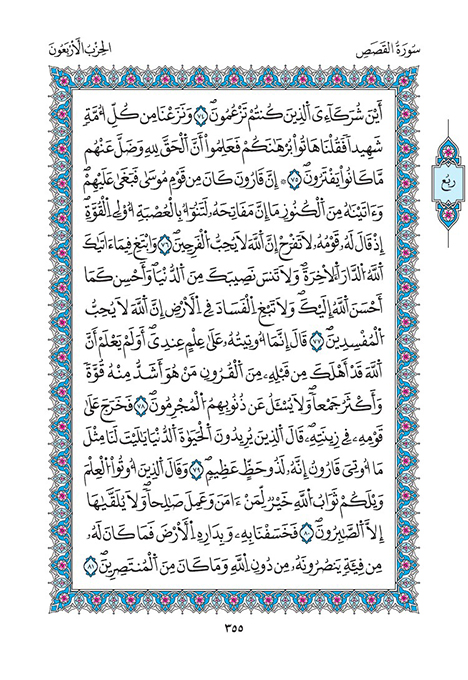 سُورَةُ القَصَصِ
الحِزْبُ الَارْبَعُونَ
أَيْنَ شُرَكَآءِيَ ٱلذِينَ كُنتُمْ تَزْعُمُونَۖ ٧٤ وَنَزَعْنَا مِن كُلِّ أُمَّةٖ
شَهِيداٗ فَقُلْنَا هَاتُواْ بُرْهَٰنَكُمْ فَعَلِمُوٓاْ أَنَّ ٱلْحَقَّ لِلهِ وَضَلَّ عَنْهُم
مَّا كَانُواْ يَفْتَرُونَۖ ٧٥ إِنَّ قَٰرُونَ كَانَ مِن قَوْمِ مُوسَىٰ فَبَغَىٰ عَلَيْهِمْۖ
وَءَاتَيْنَٰهُ مِنَ ٱلْكُنُوزِ مَآ إِنَّ مَفَاتِحَهُۥ لَتَنُوٓأُ بِالْعُصْبَةِ أُوْلِے اِ۬لْقُوَّةِۖ
إِذْ قَالَ لَهُۥ قَوْمُهُۥ لَا تَفْرَحِ اِنَّ ٱللَّهَ لَا يُحِبُّ ٱلْفَرِحِينَۖ ٧٦ وَابْتَغِ فِيمَآ ءَات۪يٰكَ
ٱللَّهُ ٱلدَّارَ ٱلَاخِرَةَۖ وَلَا تَنسَ نَصِيبَكَ مِنَ ٱلدُّنْي۪اۖ وَأَحْسِن كَمَآ
أَحْسَنَ ٱللَّهُ إِلَيْكَۖ وَلَا تَبْغِ ٱلْفَسَادَ فِے اِ۬لَارْضِ إِنَّ ٱللَّهَ لَا يُحِبُّ
ٱلْمُفْسِدِينَۖ ٧٧ قَالَ إِنَّمَآ أُوتِيتُهُۥ عَلَىٰ عِلْمٍ عِندِيۖ أَوَلَمْ يَعْلَمَ اَنَّ
ٱللَّهَ قَدَ اَهْلَكَ مِن قَبْلِهِۦ مِنَ ٱلْقُرُونِ مَنْ هُوَ أَشَدُّ مِنْهُ قُوَّةٗ
وَأَكْثَرُ جَمْعاٗۖ وَلَا يُسْـَٔلُ عَن ذُنُوبِهِمُ ٱلْمُجْرِمُونَۖ ٧٨ فَخَرَجَ عَلَىٰ
قَوْمِهِۦ فِے زِينَتِهِۦۖ قَالَ ٱلذِينَ يُرِيدُونَ ٱلْحَيَوٰةَ ٱلدُّنْي۪ا يَٰلَيْتَ لَنَا مِثْلَ
مَآ أُوتِيَ قَٰرُونُ إِنَّهُۥ لَذُو حَظٍّ عَظِيمٖۖ ٧٩ وَقَالَ ٱلذِينَ أُوتُواْ ٱلْعِلْمَ
وَيْلَكُمْ ثَوَابُ ٱللَّهِ خَيْرٞ لِّمَنَ اٰمَنَ وَعَمِلَ صَٰلِحاٗۖ وَلَا يُلَقّ۪يٰهَآ
إِلَّا ٱلصَّٰبِرُونَۖ ٨٠ فَخَسَفْنَا بِهِۦ وَبِدَارِهِ ٱلَارْضَ فَمَا كَانَ لَهُۥ
مِن فِئَةٖ يَنصُرُونَهُۥ مِن دُونِ ٱللَّهِ وَمَا كَانَ مِنَ ٱلْمُنتَصِرِينَۖ ٨١
ربع
٣٥٥